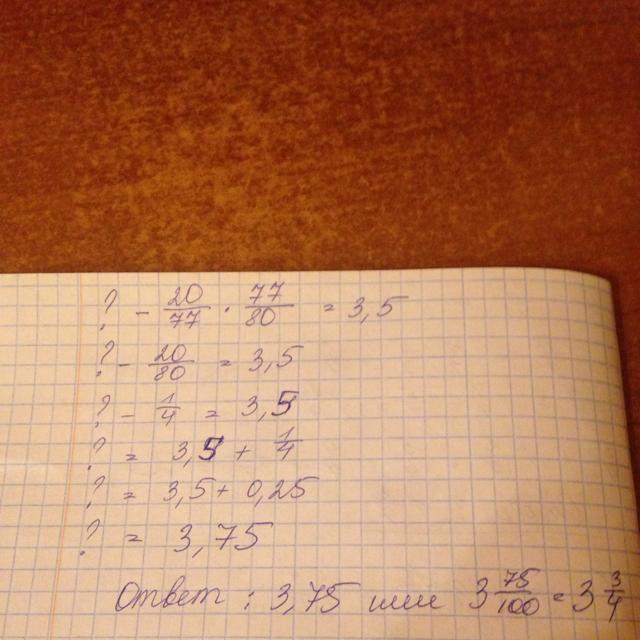 ? - 20/77 · 77/80 = 3,5
? - 20/80 = 3,5
? - 1/4 = 3,5
? = 3,5 + 1/4
? = 3,5 + 0,25
? = 3,75
Ответ : 3,75 или 3 75/100 = 3 3/4